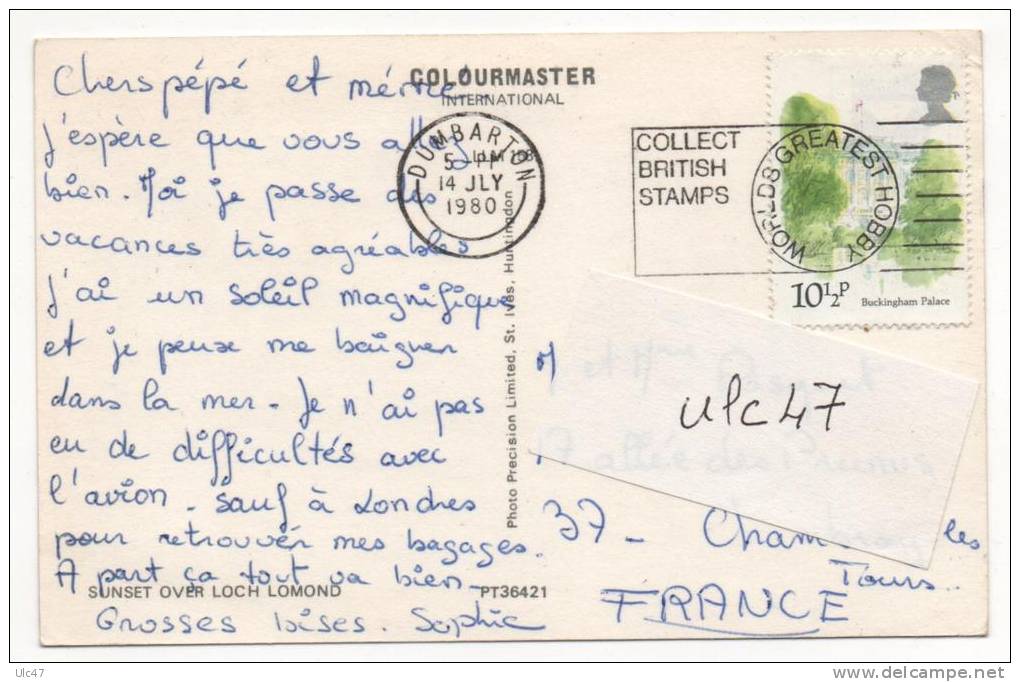 Chers pépé et mémé
j'espère que vous allez
bien. Moi je passe des
vacances très agréables
j'ai un soleil magnifique
et je peux me baigner
dans la mer. Je n'ai pas
eu de difficultés avec
l'avion. sauf à Londres
pour retrouver mes bagages.
A part ça tout va bien_
Grosses bises. Sophie
SUNSET OVER LOCH LOMOND
PT36421
COLOURMASTER
INTERNATIONAL
DUMBARTON
14 JLY
1980
Photo Precision Limited, St. Ives, Huntingdon
COLLECT
BRITISH
STAMPS
WORLDS GREATEST HOBBY
10½P
Buckingham Palace
M et Mme
allée des
ulc47
37_ Cham les
Tours..
FRANCE
Ulc47
www.delcampe.net